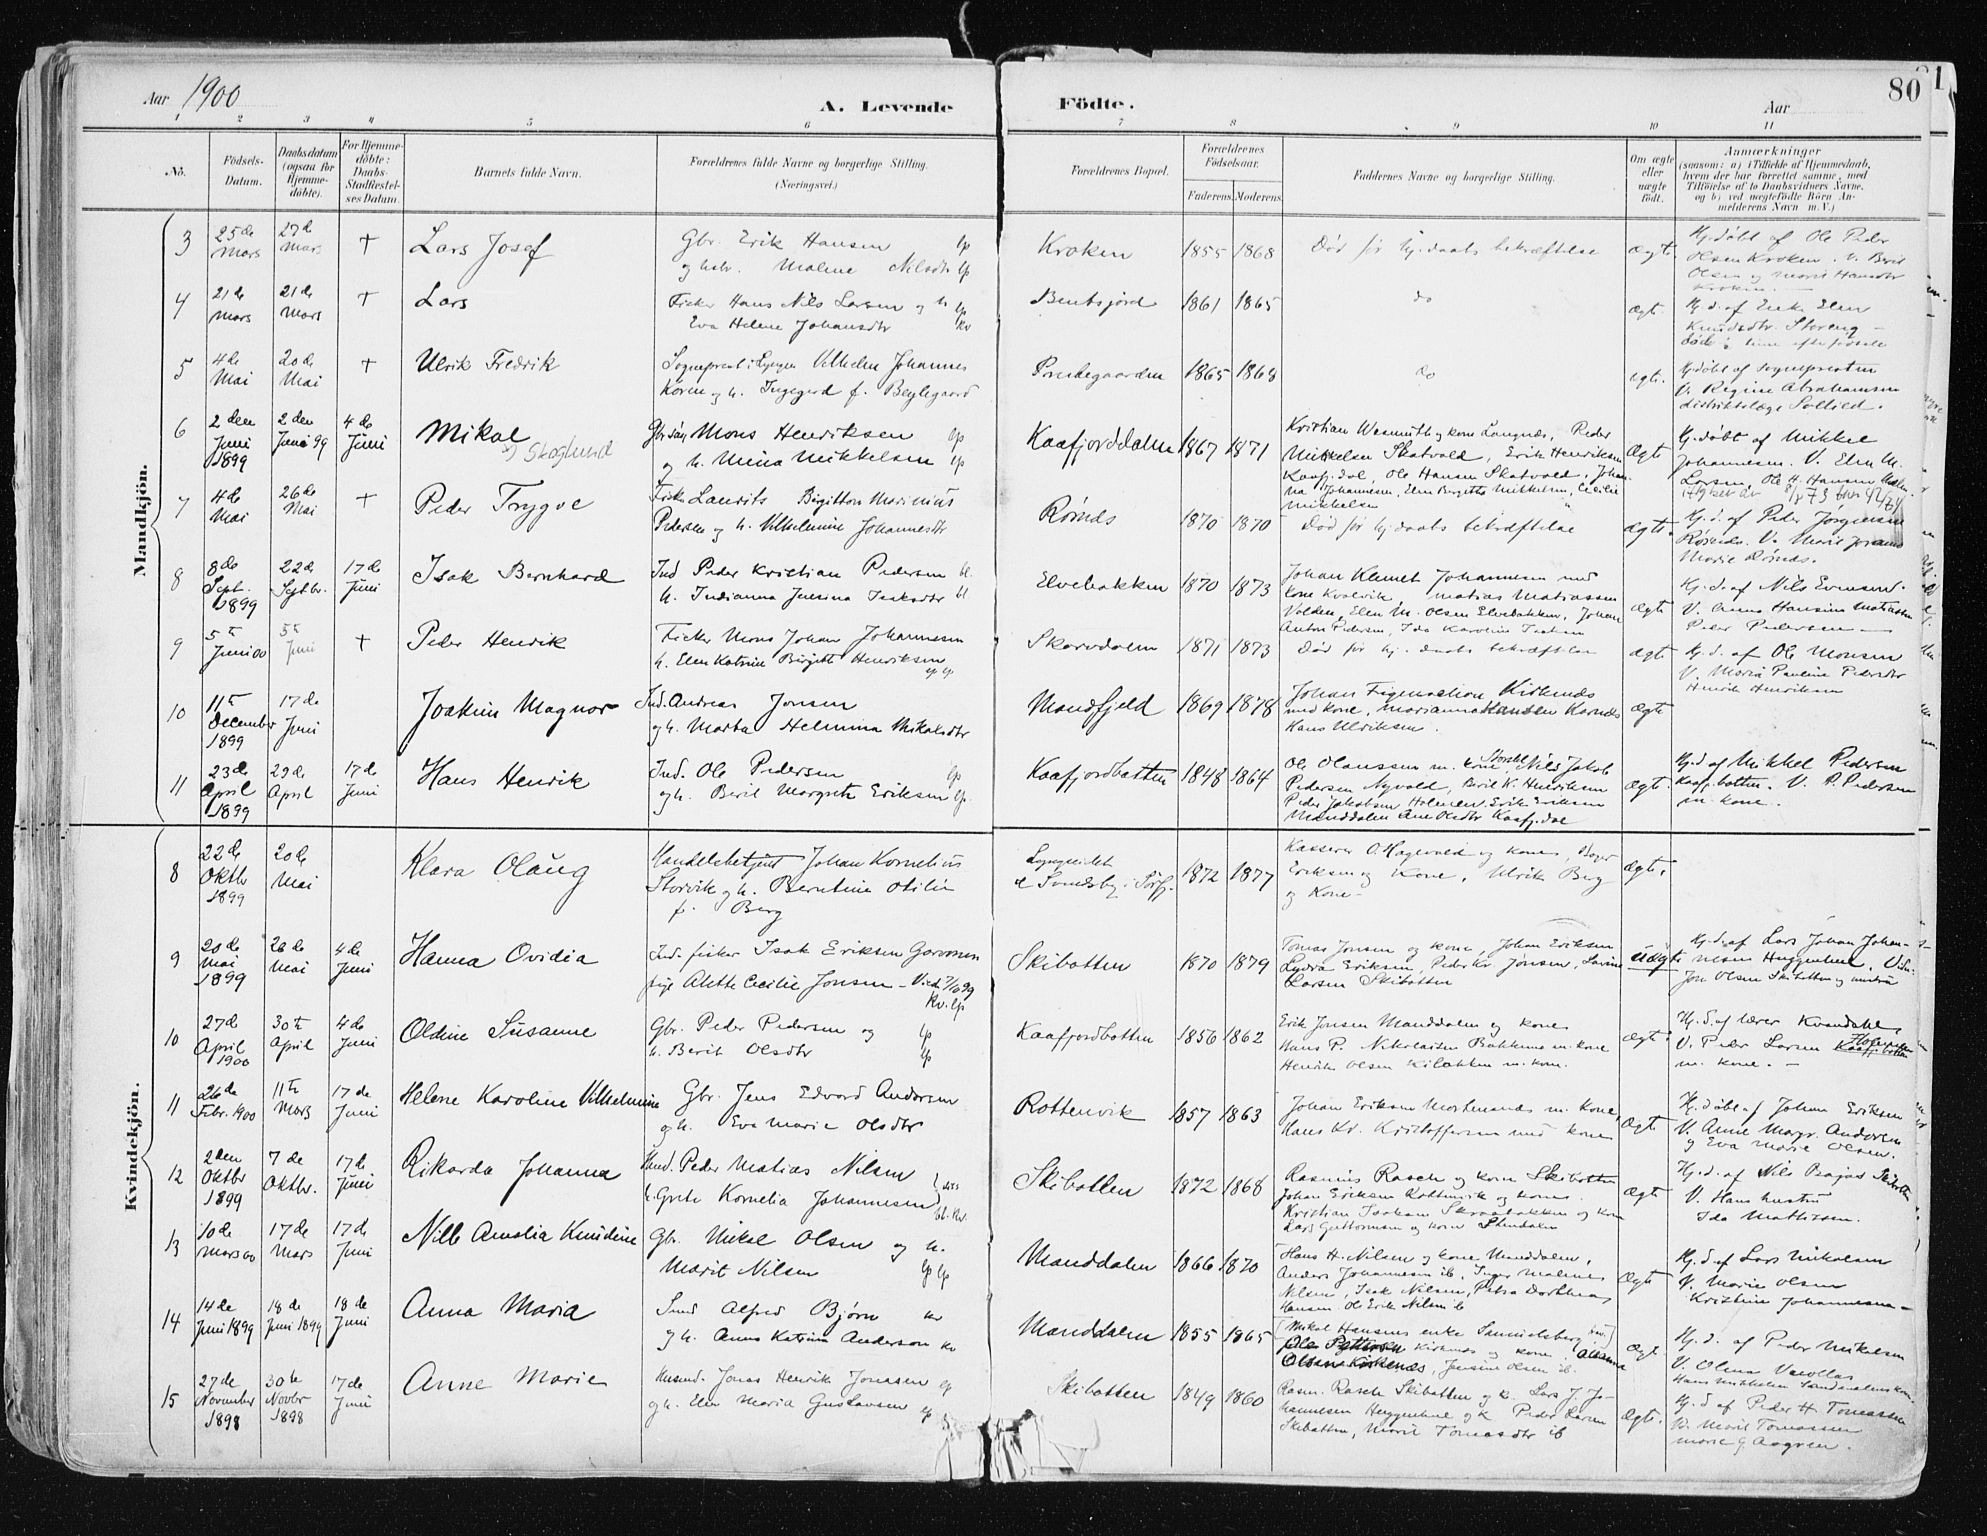 Aar 1900
A. Levende Födte.
Aar
80
1 2 3 4 5 6 7 8 9 10 11
No.
Födsels-Datum.
Daabsdatum (ogsaa for Hjemme-döbte).
For Hjemme-döbte: Daabs-Stadfæstel-ses Datum.
Barnets fulde Navn.
Forældrenes fulde Navne og borgerlige Stilling. (Næringsvei.)
Forældrenes Bopæl.
Forældrenes Födselsaar.
Faderens. Moderens.
Faddernes Navne og borgerlige Stilling.
Om ægte eller uægte födt.
Anmærkninger
(saasom: a) i Tilfælde af Hjemmedaab,
hvem der har forrettet samme, med
Tilföielse af to Daabsvidners Navne,
og b) ved uægtefödte Börn An-
melderens Navn m. V.)
Mandkjön.
3 25de Mars 27de Mars † Lars Josef Gbr. Erik Hansen og hstr. Malene Nilsdtr lp Kroken 1855 1868 Död før hj.daabs bekræftelse ægte. Hj.døbt af Ole Peder Olsen Kroken. V. Berit Olsen og Marit Hansdtr Kroken.
4 21de Mars 21de Mars † Lars Fisker Hans Nils Larsen og h. lp Eva Helene Johansdtr kv Bentsjord 1861 1865 do ægt. Hj.d. af Enke Elen Knudsdtr Storeng – død time efter fødsele
5 4de Mai 20de Mai † Ulrik Fredrik Sogneprest i Lyngen Vilhelm Johannes Koren og h. Ingegerd f. Bechgaard Prestegaarden 1865 1868 do ægt. Hj.døbt af sognepresten V. Regine Abrahamsen distriktslæge Soltild.
6 2den Juni 1899 2den Juni 99 4de Juni Mikal Skoglund Mons Henriksen lp og h. Mina Mikkelsen lp Kaafjorddalen 1867 1871 Kristian Wasmuth og kone Langnæs, Peder Mikkelsen Skatvold, Erik Henriksen Kaafj.dal, Ole Hansen Skatvold, Johanna Johannesen, Elen Birgitte Mikkelsen, Cecilie Mikkelsen Ægte Hj.døbt af Mikkel Johannesen. V. Elen M. Larsen, Ole H. Hansen
7 4de Mai 26de Mai † Peder Trygve Fisker Laurits Birgitton Marinius Pedersen og h. Vilhelmine Johannesdtr Rørnæs 1870 1870 Död før hj.daabs bekræftelse ægte. Hj.d. af Peder Jørgensen Rørnæs. V. Marie Rørnæs.
8 8de Sept. 1899 22de Septbr. 17de Juni Isak Bernhard Ind Peder Kristian Pedersen bl. h. Indianna Jensina Isaksdtr bl. Elvebakken 1870 1873 Johan Klemet Johannesen med kone Kvalvik, Matias Matiassen Volden, Elen M. Olsen Elvebakken, Johan Anton Pedersen, Ida Karoline Isaksen ægte Hj.d. af Nils Evensen. V. Anna Hansine Matiassen Peder Pedersen –
9 5te Juni 00 5te Juni † Peder Henrik Fisker Mons Johan Johannesen h. Elen Katrine Birgitte Henriksen lp lp Skarvdalen 1871 1873 Død før hj. daabs bekræftelse ægte Hj.d. af Ole Monsen V. Maria Pauline Pedersdtr Henrik Henriksen
10 11te December 1899 17de Juni Joakim Magnor Ind. Andreas Jonsen og h. Marta Helmina Mikalsdtr Mandfjeld 1869 1878 Johan Figenschou Kirkenæs med kone, Marianna Hansen Karnæs Hans Ulriksen. ægte
11 23de April 1899 29de April 17de Juni Hans Henrik Ind. Ole Pedersen lp og h. Berit Margrete Eriksen lp. Kaafjordbotten 1848 1864 Ole Olaussen m. kone, Nils Jakob Pedersen Nyvold, Berit K. Henriksen Peder Jakobsen Holmen. Erik Eriksen Manddalen Ane Olsdtr Kaafj.dal ægte. Hj.d af Mikkel Pedersen Kaafj.botten. V. P. Pedersen m. kone.
Kvindekjön.
8 22de Oktbr 1899 20de Mai Klara Olaug Handelsbetjent Johan Kornelius Storvik og h. Berntine Otilie f. Berg Lyngseidet 1872 1877 Kasserer O. Hagevold og kone, Eriksen og kone, Ulrik Berg og Kone – ægte.
9 20de Mai 1899 28de Mai 4de Juni Hanna Ovidia Ind. fisker Isak Eriksen Garvonen pige Alette Cecilie Jonsen – Kv. lp Skibotten 1870 1879 Tomas Jonsen og kone, Johan Eriksen Lydia Eriksen, Peder Kr Jonsen, Larsen Skibotten uægte Hj.d. af Lars Johan Johannesen Jon Olsen Skibotten
10 27de April 1900 30te April 4de Juni Oldine Susanne Gbr. Peder Pedersen og lp h. Berit Olsdtr lp Kaafjordbotten 1856 1862 Erik Jonsen Manddalen og kone Hans P. Nikolaisen Bakkene m. kone Henrik Olsen m. kone. ægte Hj.d. af lærer Kvandahl, V. Peder Larsen Kaafj.botten m. kone. –
11 26de Febr. 1900 11te Mars 17de Juni Helene Karoline Vilhelmine Gbr. Jens Edvard Andersen og h. Eva Marie Olsdtr Rottenvik 1857 1863 Johan Eriksen Mortensnæs m. kone, Hans Kr. Kristoffersen med kone ægte Hj.døbt af Johan Eriksen V. Anne Margr. Andersen og Eva Marie Olsen.
12 2den Oktbr 1899 7de Oktbr. 17de Juni Rikarda Johanna Peder Matias Nilsen h. Grete Kornelia Johannesen Skibotten 1872 1868 Rasmus Rasch og kone Skibotten Johan Eriksen Rottenvik og kone. Kristian Isaksen og kone Lars Guttormsen og kone Ægte Hj.d. af Nils Skibotten V. Hans hustru Ida Mathisen.
13 10de Mars 00 17de Mars 17de Juni Nille Amalia Knudine Gbr. Mikal Olsen og h. Marit Nilsen lp lp Manddalen 1866 1870 Hans H. Nilsen og kone Manddalen, Anders Johannesen ib, Inger Nilsen, Isak Nilsen, Petra Dorthea Hansen. Ole Erik Nilsen ib Ægte Hj.d. af Lars Mikalsen V. Marie Olsen Kristine Johannesen –
14 14de Juni 1899 18de Juni 1899 18de Juni Anna Maria Ind Alfred Bjørn kv og h. Anna Katrina Anderson kv Manddalen 1855 1865 Mikal Hansens enke Samuelsberg Ole Pettersen Kirknæs og kone. Olsen Kirkenæs, Jensine Olsen ib ægt Hj.d. af Peder Mikalsen V. Olina
15 27de November 1898 30te Novbr 1898 17de Juni Anne Marie Husmd. Jonas Henrik Jonasen lp og h. Elen Maria Gustavsen lp Skibotten 1849 1860 Rasm. Rasch Skibotten og k. Lars J. Johannesen og k Peder Larsen Skibotten, Marit Tomasdtr ib ægte. Hj.d af Peder H. Tomassen V. Marit Tomassen